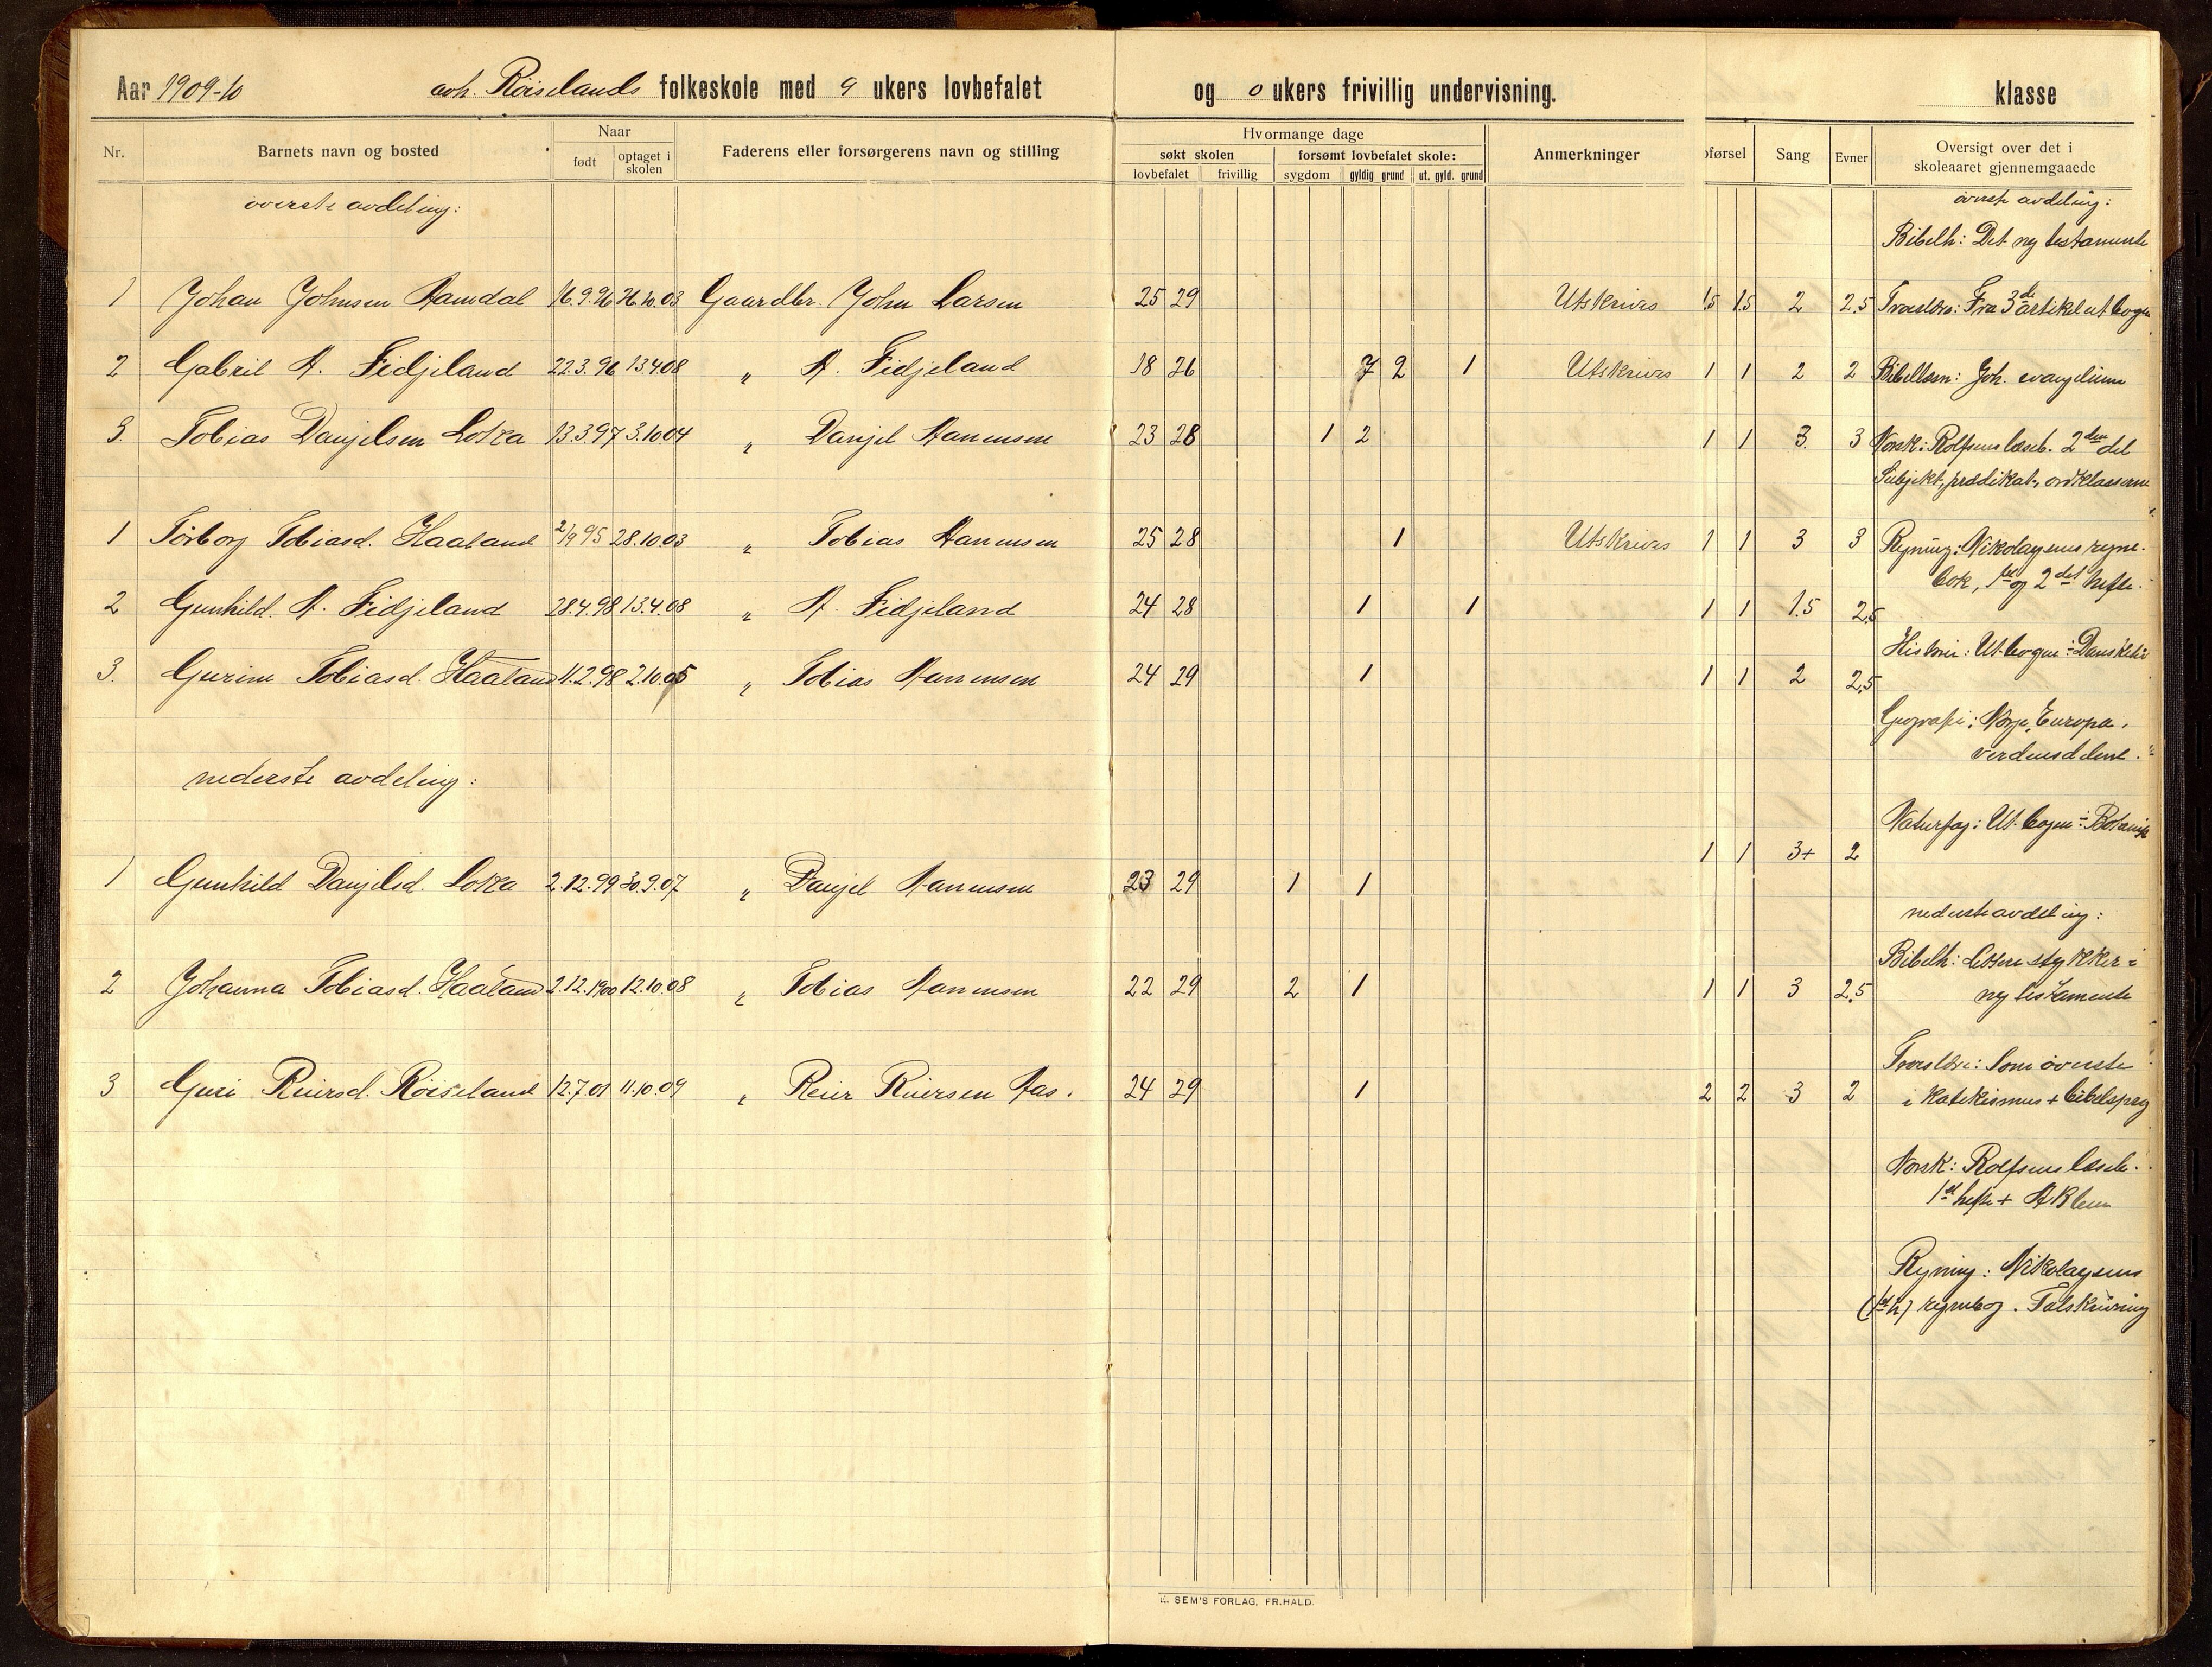 Aar 1909-10 Røiselands folkeskole med 9 ukers lovbefalet og 0 ukers frivillig undervisning. klasse
Nr. Barnets navn og bosted Naar født optaget i skolen Faderens eller forsørgerens navn og stilling Hvormange dage søkt skolen lovbefalet frivillig forsømt lovbefalet skole: sygdom gyldig grund ut. gyld. grund Anmerkninger førsel Sang Evner Oversigt over det i skoleaaret gjennemgaaede
øverste avdeling:
1 Johan Johnsen Aamdal 16.9.96 26.10.03 Gaardbr. John Larsen 25 29 Utskrives 1.5 1.5 2 2.5
2 Gabriel A. Fidjeland 22.3.96 13.4.08 " A. Fidjeland 18 26 7 2 1 Utskrives 1 1 2 2
3. Tobias Danjelsen Lotra 13.3.97 3.10.04 " Danjel Aanensen 23 28 1 2 1 1 3 3
1 Torborg Tobiasd. Haaland 2/9 95 28.10.03 " Tobias Aanensen 25 28 1 Utskrives 1 1 3 3
2 Gunhild. A. Fidjeland 28.4.98 13.4.08 " A. Fidjeland 24 28 1 1 1 1 1.5 2.5
3. Gurine Tobiasd. Haaland 11.2.98 2.10.05 " Tobias Aanensen 24 29 1 1 1 2 2.5
nederste avdeling:
1 Gunhild Danjelsd. Lotra 2.12.99 30.9.07 " Danjel Aanensen 23 29 1 1 1 1 3+ 2
2 Johanna Tobiasd. Haaland 2.12.1900 12.10.08 " Tobias Aanensen 22 29 2 1 1 1 3 2.5
3 Guri Reiersd. Røiseland 12.7.01 11.10.09 " Reier Reiersen Aas. 24 29 1 2 2 3 2
øverste avdeling:
Bibelh: Det ny testamente
Troeslære: Fra 3de artikel ut bogen
Bibellæsn: Joh. evangelium
Norsk: Rolfsens læseb. 2den del
Subjekt, prædikat, ordklasserne
Regning: Nikolaysens regne-
bok, 1ste og 2det hefte.
Historie: Ut bogen:
Geografi: Norge, Europa,
verdensdelene.
Naturfag: Ut bogen: Botanik
nederste avdeling:
Bibelh: Lettere stykker i
ny testamente
Troeslære: Som øverste
i katekismus + bibelsprog
Norsk: Rolfsens læseb.
1ste hefte +
Regning: Nikolaysens
(1ste h) regnebog. Talskrivning
E. SEM'S FORLAG, FR.HALD.